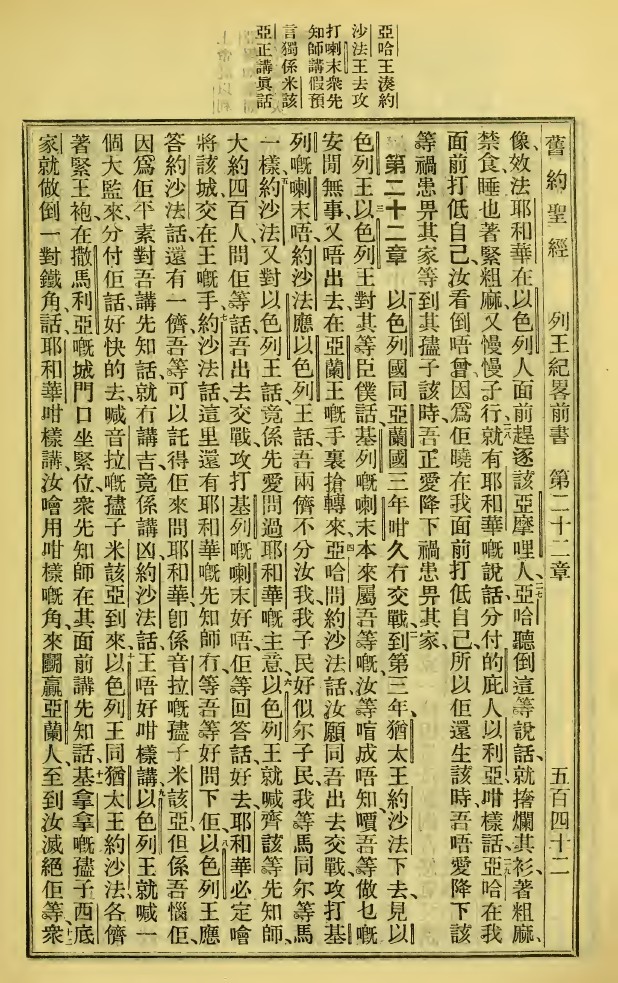 亞哈王湊約
沙法王去攻
打喇末衆先
知師講假預
言獨係米該
亞正講眞話
舊約聖經 列王紀畧前書 第二十二章 五百四十二
像、效法耶和華在以色列人面前趕逐該亞摩哩人、亞哈聽倒這等說話、就撦爛其衫、著粗麻、
禁食、睡也著緊粗麻、又慢慢子行、就有耶和華嘅說話分付的庇人以利亞咁樣話、亞哈在我
面前打低自己、汝看倒唔曾、因爲佢曉在我面前打低自己、所以佢還生該時、吾唔愛降下該
等禍患畀其家、等到其孻子該時、吾正愛降下禍患畀其家、
第二十二章 以色列國同亞蘭國三年咁久冇交戰、到第三年、猶太王約沙法下去、見以
色列王、以色列王對其等臣僕話、基列嘅喇末本來屬吾等嘅、汝等唷成唔知、嗊吾等做乜嘅
安閒無事、又唔出去、在亞蘭王嘅手裏搶轉來、亞哈問約沙法話、汝願同吾出去交戰、攻打基
列嘅喇末唔、約沙法應以色列王話、吾兩儕不分汝我、我子民好似尔子民、我等馬同尔等馬
一樣、約沙法又對以色列王話、竟係先愛問過耶和華嘅主意、以色列王就喊齊該等先知師、
大約四百人、問佢等話、吾出去交戰、攻打基列嘅喇末好唔、佢等回答話、好去、耶和華必定噲
將該城交在王嘅手、約沙法話、這里還有耶和華嘅先知師冇、等吾等好問下佢、以色列王應
答約沙法話、還有一儕、吾等可以託得佢來問耶和華、卽係音拉嘅孻子米該亞、但係吾惱佢、
因爲佢平素對吾講先知話、就冇講吉、竟係講凶、約沙法話、王唔好咁樣講、以色列王就喊一
個大監來、分付佢話、好快的去喊音拉嘅孻子米該亞到來、以色列王同猶太王約沙法、各儕
著緊王袍、在撒馬利亞嘅城門口坐緊位、衆先知師在其面前講先知話、基拿拿嘅孻子西底
家就做倒一對鐵角、話、耶和華咁樣講、汝噲用咁樣嘅角、來鬭贏亞蘭人、至到汝滅絕佢等、衆